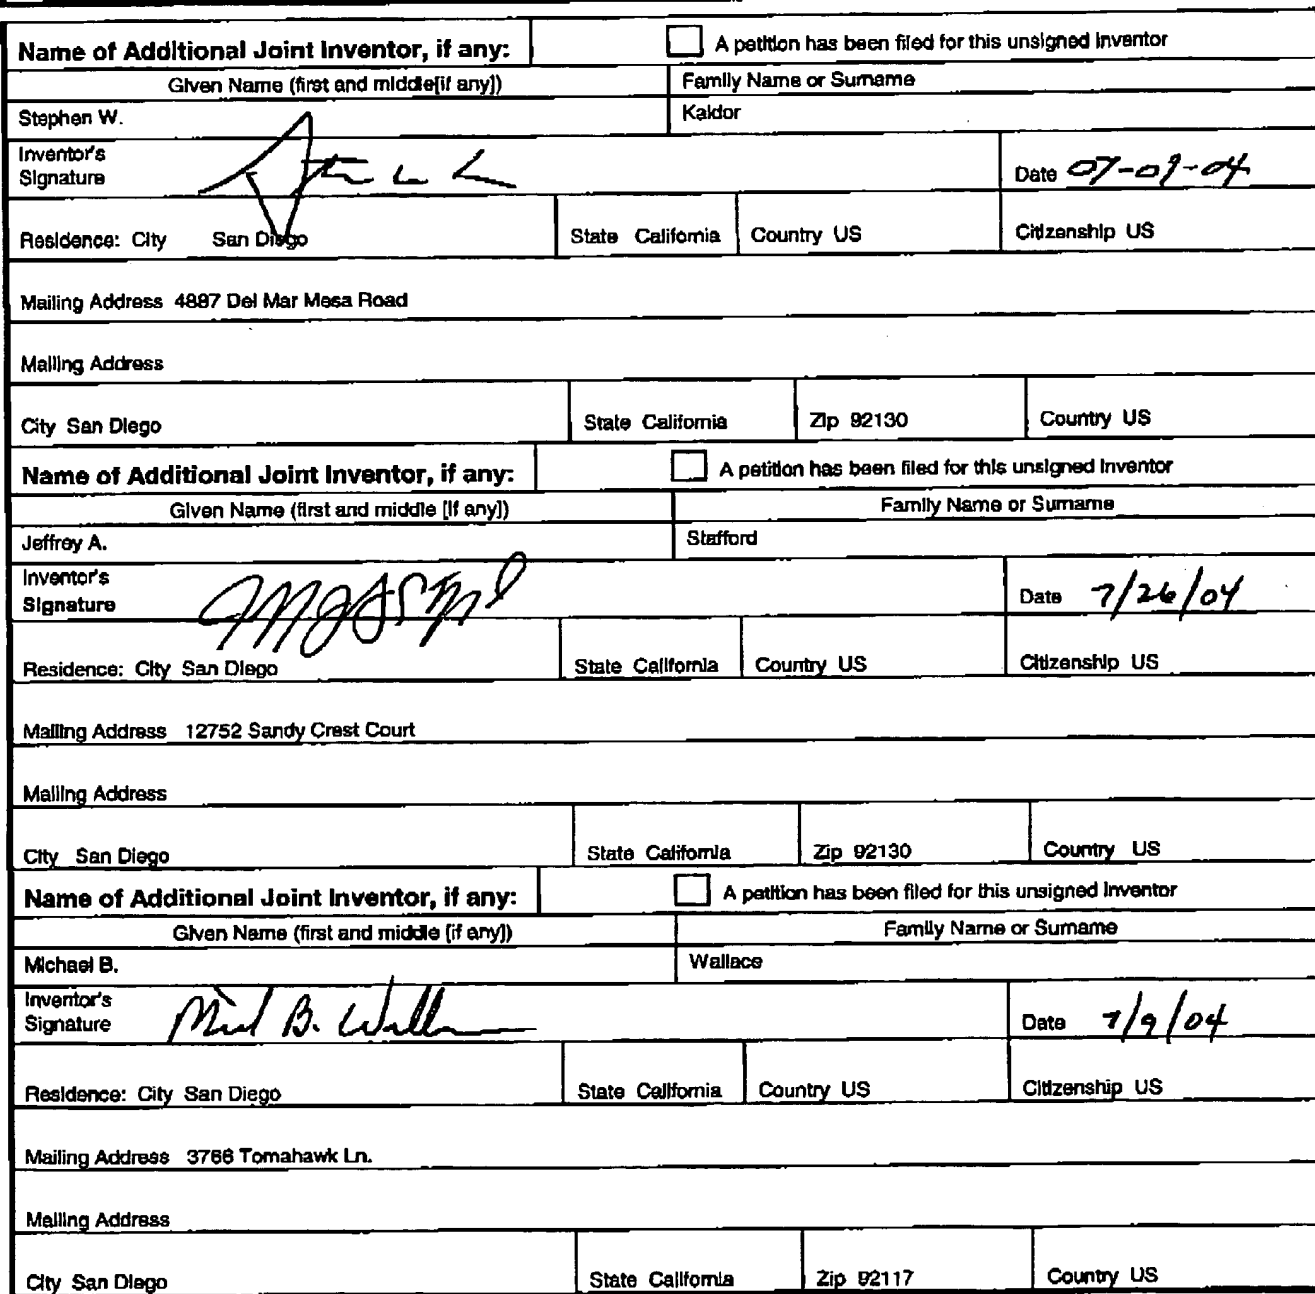 Name of Additional Joint Inventor, if any: A petition has been filed for this unsigned inventor
Given Name (first and middle[if any]) Family Name or Surname
Stephen W. Kaldor
Inventor's
Signature Date 07-09-04
Residence: City San Diego State California Country US Citizenship US
Mailing Address 4887 Del Mar Mesa Road
Mailing Address
City San Diego State California Zip 92130 Country US
Name of Additional Joint Inventor, if any: A petition has been filed for this unsigned inventor
Given Name (first and middle [if any]) Family Name or Surname
Jeffrey A. Stafford
Inventor's
Signature Date 7/26/04
Residence: City San Diego State California Country US Citizenship US
Mailing Address 12752 Sandy Crest Court
Mailing Address
City San Diego State California Zip 92130 Country US
Name of Additional Joint Inventor, if any: A petition has been filed for this unsigned inventor
Given Name (first and middle [if any]) Family Name or Surname
Michael B. Wallace
Inventor's
Signature Date 7/9/04
Residence: City San Diego State California Country US Citizenship US
Mailing Address 3766 Tomahawk Ln.
Mailing Address
City San Diego State California Zip 92117 Country US